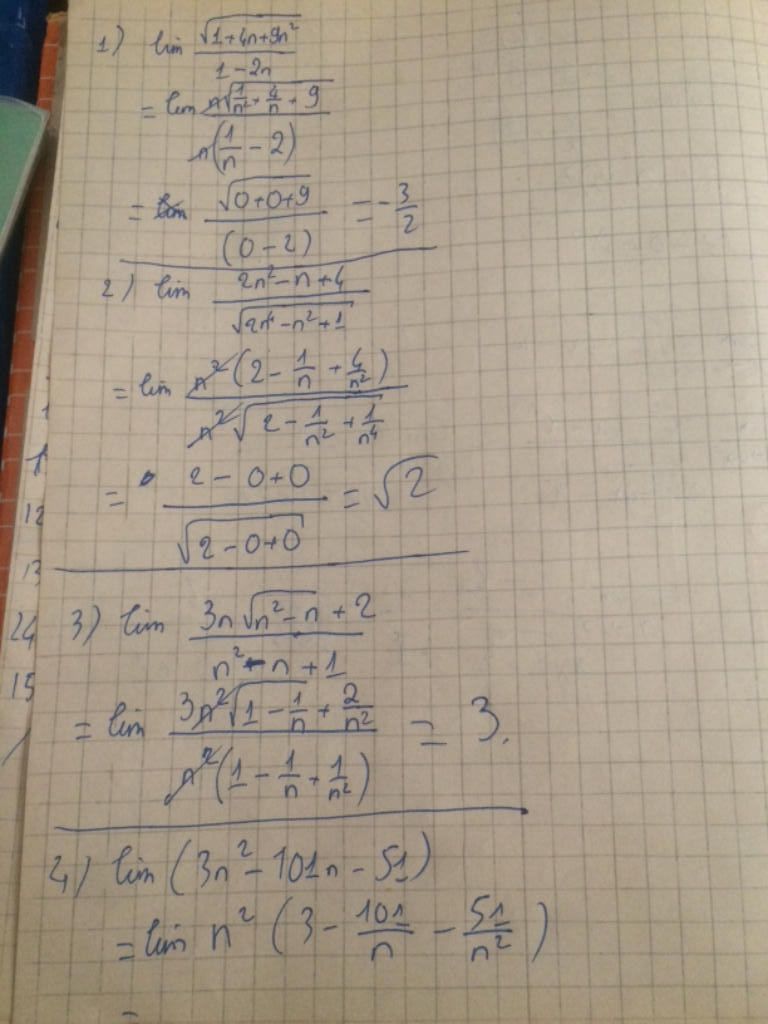 1) lim √(1+4n+9n²) / (1-2n)
= lim n√(1/n² + 4/n + 9) / n(1/n - 2)
= lim √(0+0+9) / (0-2) = -3/2
2) lim (2n²-n+4) / √(2n⁴-n²+1)
= lim n²(2 - 1/n + 4/n²) / n²√(2 - 1/n² + 1/n⁴)
= (2-0+0) / √(2-0+0) = √2
3) lim (3n√(n²-n) + 2) / (n²-n+1)
= lim (3n²√(1 - 1/n) + 2/n²) / n²(1 - 1/n + 1/n²) = 3.
4) lim (3n²-101n-51)
= lim n² (3 - 101/n - 51/n²)
=
12
13
24
15